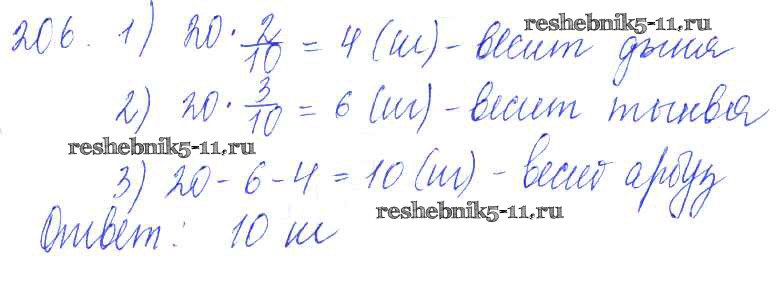 reshebnik5-11.ru
206. 1) 20 · 2/10 = 4 (кг) - весит дыня
2) 20 · 3/10 = 6 (кг) - весит тыква
reshebnik5-11.ru
3) 20 - 6 - 4 = 10 (кг) - весит арбуз
reshebnik5-11.ru
Ответ: 10 кг